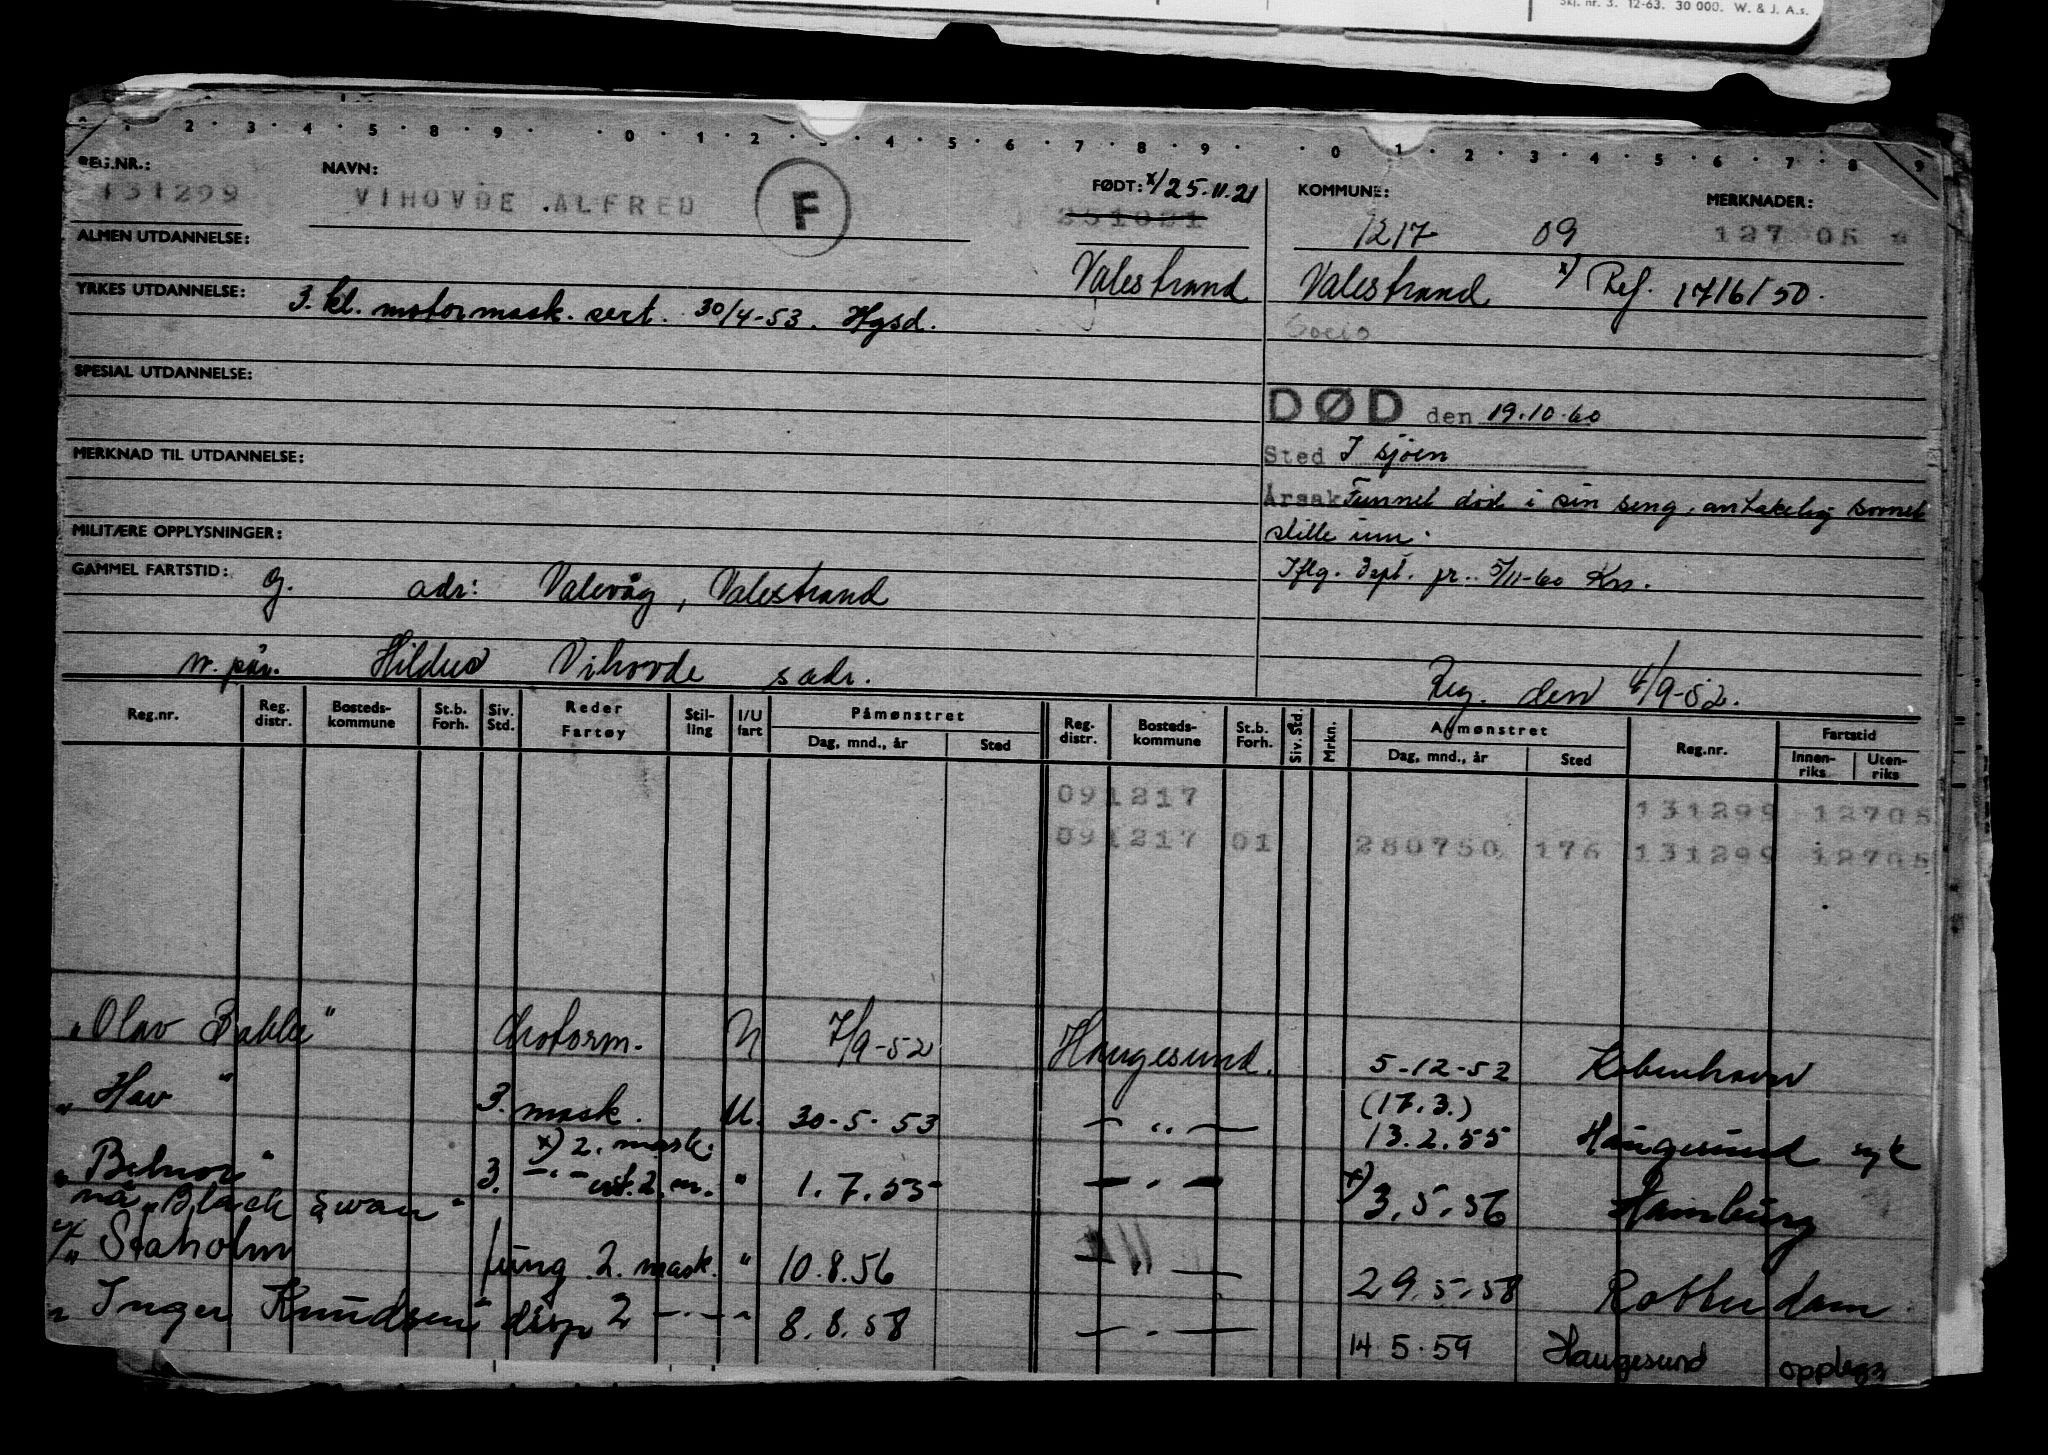 Skj. nr. 3. 12-63. 30 000. W. & J. A.s.
2 · 3 · 4 · 5 · 8 · 9 · · 0 · 1 · 2 · 3 · 4 · 5 · 6 · 7 · 8 · 9 · · 0 · 1 · 2 · 3 · 4 · 5 · 6 · 7 · 8 · 9
REG.NR.: NAVN: FØDT: x/ 25.11.21 KOMMUNE: MERKNADER:
131299 VIHOVDE ALFRED F 251021 1217 09 127 05
ALMEN UTDANNELSE:
Valestrand Valestrand x) Ref. 17/6/50.
YRKES UTDANNELSE: 3. kl. motormask. sert. 30/4-53. Hgsd.
SPESIAL UTDANNELSE:
DØD den 19.10.60
MERKNAD TIL UTDANNELSE:
Sted I sjøen
Årsak Funnet død i sin seng, antakelig sovnet
stille inn.
MILITÆRE OPPLYSNINGER:
Iflg. Dept. pr. 5/11-60 Kn.
GAMMEL FARTSTID: G. adr: Valevåg, Valestrand
n. pår. Hildur Vihovde s adr. Reg. den 4/9-52.
Reg.nr. Reg. distr. Bosteds-kommune St.b. Forh. Siv. Std. Reder Fartøy Stil-ling I/U fart Påmønstret Reg. distr. Bosteds-kommune St.b. Forh. Siv. Std. Mrkn. Avmønstret Reg.nr. Fartstid
Dag, mnd., år Sted Dag, mnd., år Sted Innen-riks Uten-riks
091217 131299 12705
091217 01 280750 176 131299 12705
"Olav Bakke" Motorm. N 7/9-52 Haugesund. 5-12-52 København
"Hav" 3. mask. U. 30-5-53 — " — (17.3.) 13.2.55 Haugesund syk
x) 2. mask.
"Belnor" 3. — " — 2. m. " 1.7.55 — " — x) 3.5.56 Hamburg
nå "Black Swan"
"Staholm fung. 2. mask. " 10.8.56 — — 29.5.58 Rotterdam
"Inger Knudsen" disp 2 — " — " 8.8.58 — " — 14 5.59 Haugesund opplegg